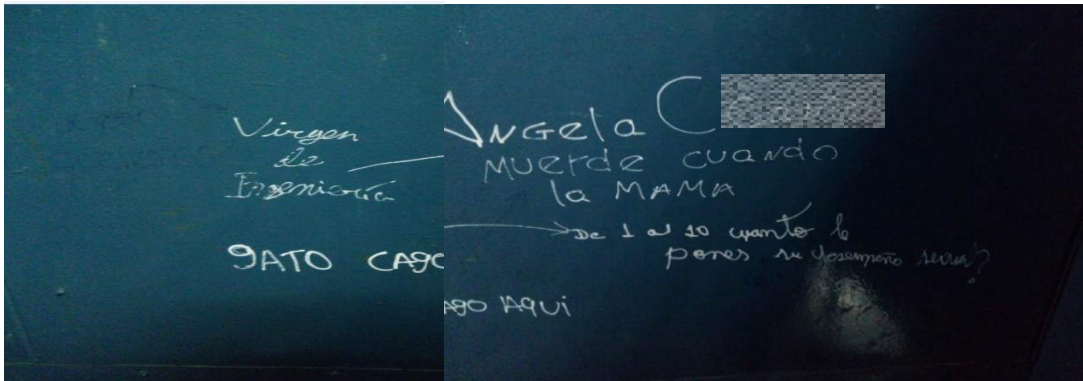 Virgen
de
Ingeniería
GATO CAGO
ANGela C
MUERDE CUANDO
la MAMA
De 1 al 10 cuanto le
pones su desempeño
AGO AQUI